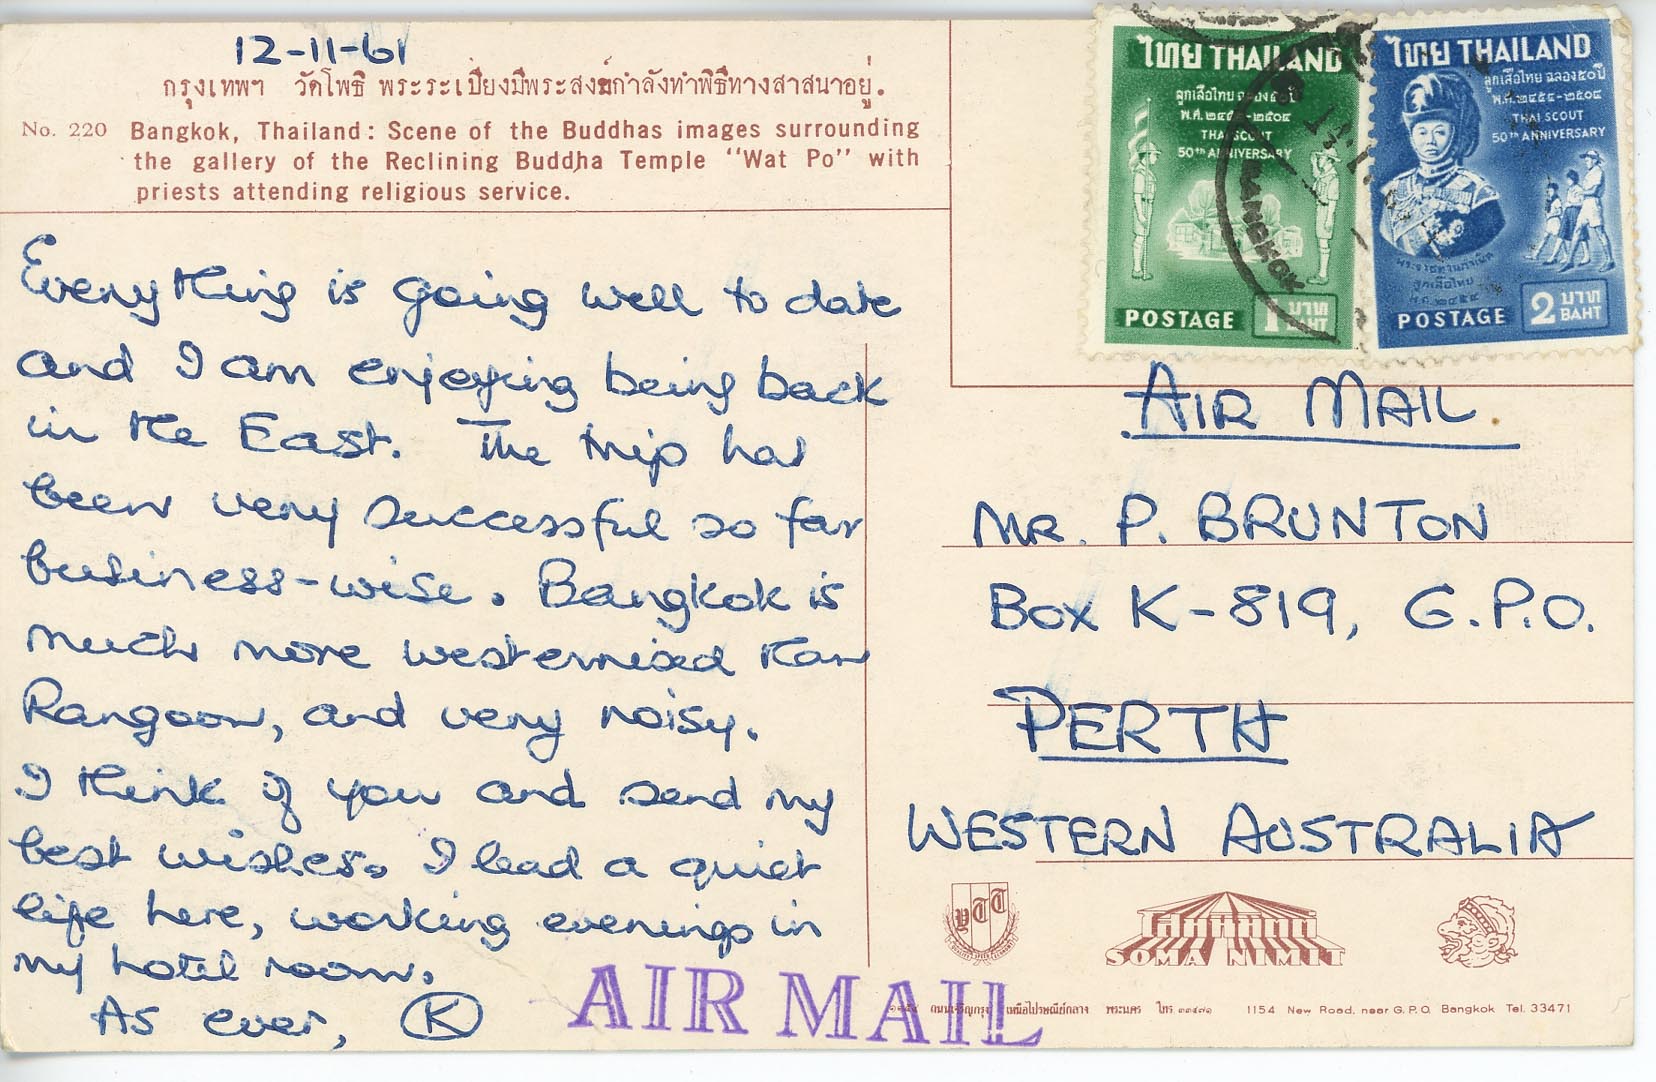 12-11-61
กรุงเทพฯ วัดโพธิ พระระเบียงมีพระสงฆ์กำลังทำพิธีทางสาสนาอยู่.
No. 220 Bangkok, Thailand: Scene of the Buddhas images surrounding
the gallery of the Reclining Buddha Temple "Wat Po" with
priests attending religious service.
Everything is going well to date
and I am enjoying being back
in the East. The trip has
been very successful so far
business-wise. Bangkok is
much more westernised than
Rangoon, and very noisy.
I think if you and send my
best wishes. I lead a quiet
life here, working evenings in
my hotel room.
As ever, K
AIR MAIL
ไทย THAILAND
ลูกเสือไทย ฉลอง ๕๐ ปี
พ.ศ. ๒๔๕๔-๒๕๐๔
THAI SCOUT
50th ANNIVERSARY
POSTAGE 1 บาท BAHT
BANGKOK
ไทย THAILAND
ลูกเสือไทย ฉลอง ๕๐ ปี
พ.ศ. ๒๔๕๔-๒๕๐๔
THAI SCOUT
50th ANNIVERSARY
ลูกเสือไทย
พ.ศ. ๒๔๕๔
POSTAGE 2 บาท BAHT
AIR MAIL
MR. P. BRUNTON
BOX K-819, G.P.O.
PERTH
WESTERN AUSTRALIA
SOMA NIMIT
พระนคร โทร ๓๓๔๗๑ 1154 New Road, near G.P.O. Bangkok Tel. 33471